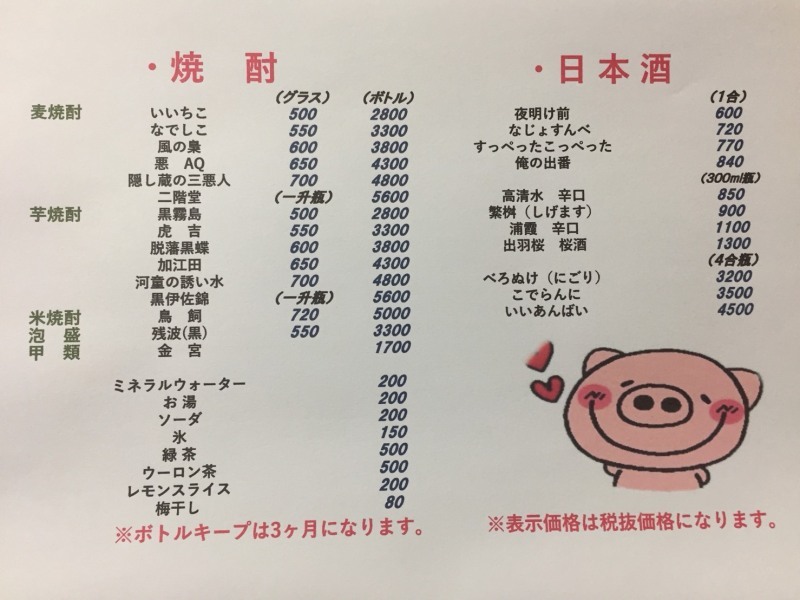 ・焼　酎
（グラス）　（ボトル）
麦焼酎　いいちこ　500　2800
なでしこ　550　3300
風の梟　600　3800
悪　AQ　650　4300
隠し蔵の三悪人　700　4800
二階堂　（一升瓶）　5600
芋焼酎　黒霧島　500　2800
虎　吉　550　3300
脱藩黒蝶　600　3800
加江田　650　4300
河童の誘い水　700　4800
黒伊佐錦　（一升瓶）　5600
米焼酎　鳥　飼　720　5000
泡　盛　残波(黒)　550　3300
甲　類　金　宮　1700
ミネラルウォーター　200
お 湯　200
ソーダ　200
氷　150
緑 茶　500
ウーロン茶　500
レモンスライス　200
梅干し　80
※ボトルキープは3ヶ月になります。
・日本酒
（1合）
夜明け前　600
なじょすんべ　720
すっぺったこっぺった　770
俺の出番　840
（300ml瓶）
高清水　辛口　850
繁桝（しげます）　900
浦霞　辛口　1100
出羽桜　桜酒　1300
（4合瓶）
べろぬけ（にごり）　3200
こでらんに　3500
いいあんばい　4500
※表示価格は税抜価格になります。